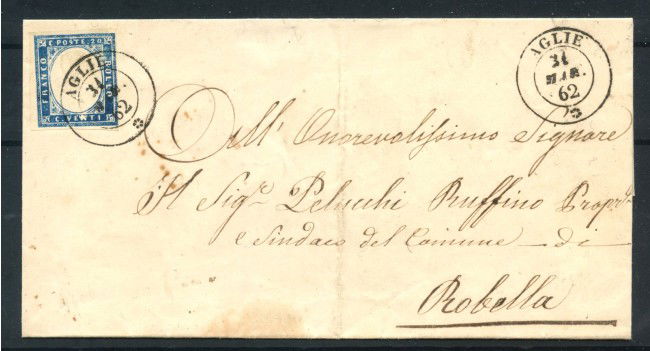 C. POSTE. 20
FRANCO
BOLLO
C. VENTI
AGLIE
31
MAR.
62
AGLIE
31
MAR.
62
All' Onorevolissimo Signore
Il Sig.r Pelucchi Ruffino Propr.o
e Sindaco del Comune di
Robella